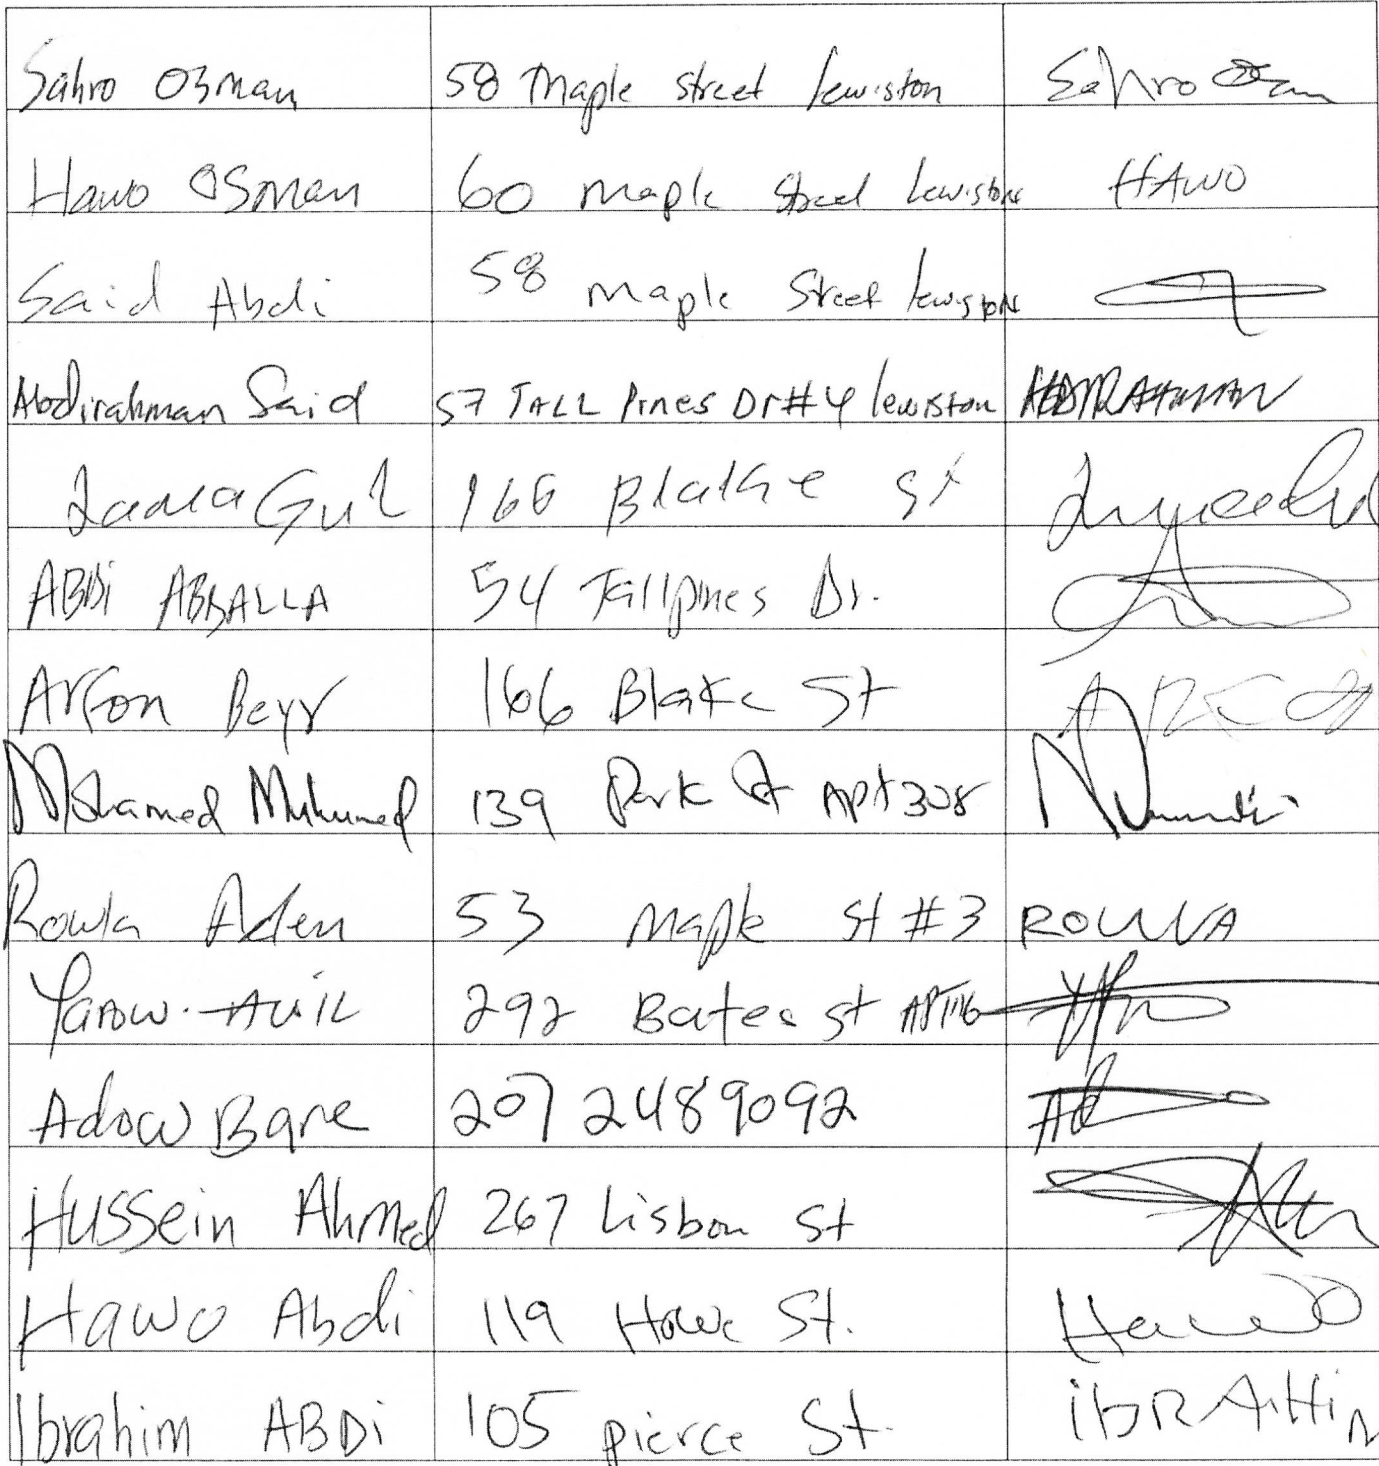 Sahro Osman 58 Maple street lewiston Sahro Osm
Hawo OSman 60 maple Street Lewiston HAWO
Said Abdi 58 maple Street lewiston
Abdirahman Said 57 TALL Pines Dr #4 lewiston ABDIRAHMAN
Gul 166 St
ABDi ABDALLA 54 Tallpines Dr.
Arfon Beyr 166 Blake St
Mohamed Muhumed 139 Park St APt 308
Rowla Aden 53 Maple St #3
Yarow 292 Bates St
Adow Bare 207 2489092
HUSSein Ahmed 267 Lisbon St
Hawo Abdi 119 Howe St. Hawo
Ibrahim ABDi 105 pierce St. ibRAHiM